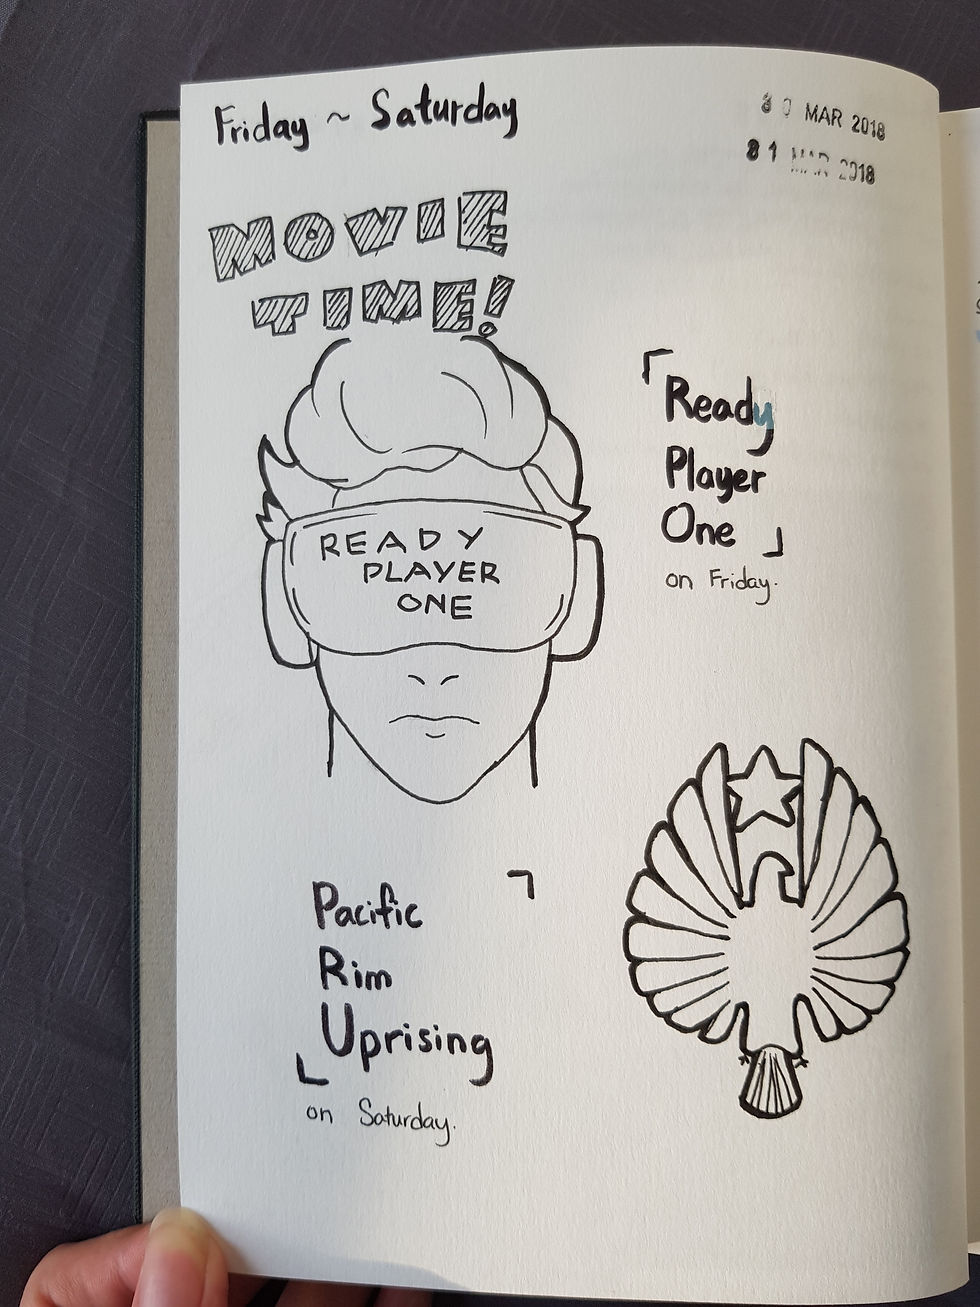 Friday ~ Saturday
30 MAR 2018
31 MAR 2018
MOVIE
TIME!
「Ready
Player
One」
on Friday.
READY
PLAYER
ONE
Pacific
Rim
Uprising
on Saturday.